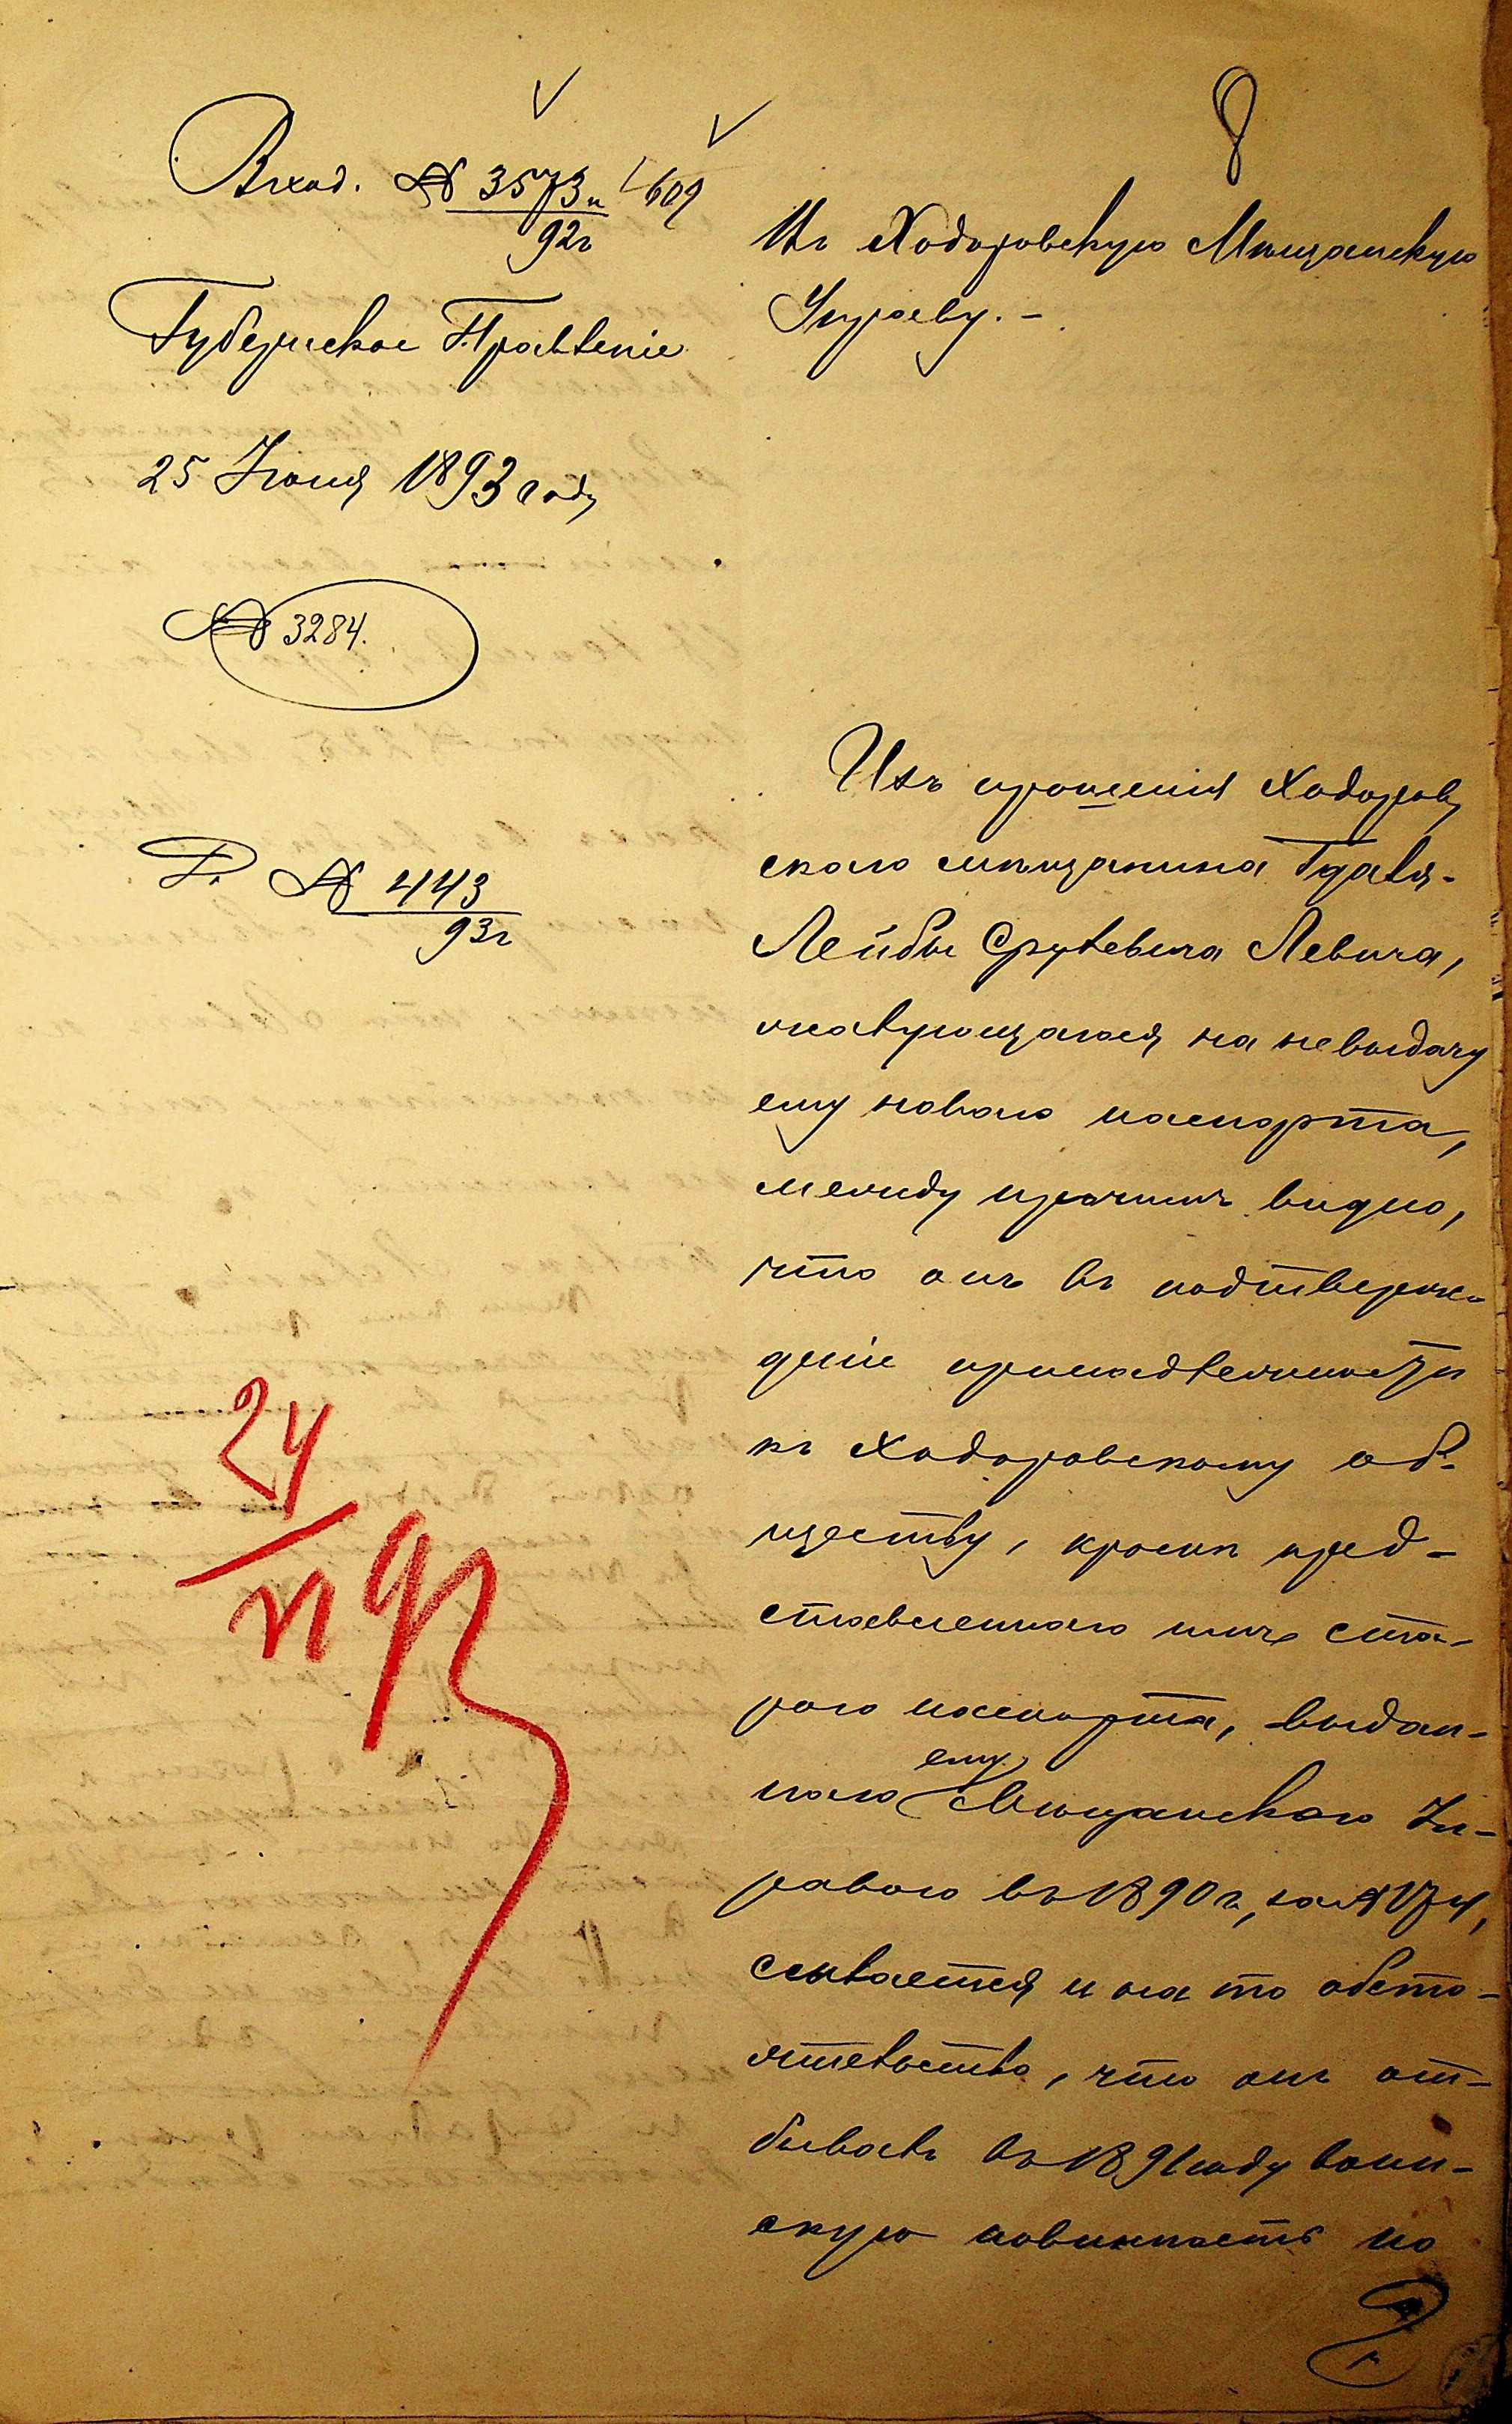 8
Вход. № 3573 и 1609
92г
Губернское Правленіе
25 Іюня 1893 году
№ 3284.
Р. № 443
93г
24
VI 93
Въ Ходоровскую Мѣщанскую
Управу. –
Изъ прошенія Ходоров
скаго мѣщанина Гдаля-
Лейбы Срулевича Левича,
жалующагося на невыдачу
ему новаго паспорта,
между прочимъ видно,
что онъ въ подтверж-
деніе принадлежности
къ Ходоровскому об-
ществу, кромѣ пред-
ставленнаго имъ ста-
раго паспорта, выдан-
ему
наго Мѣщанскою Уп-
равою въ 1890 г., за № 174,
ссылается и на то обсто-
ятельство, что онъ от-
бывалъ въ 1891 году воин-
скую повинность по